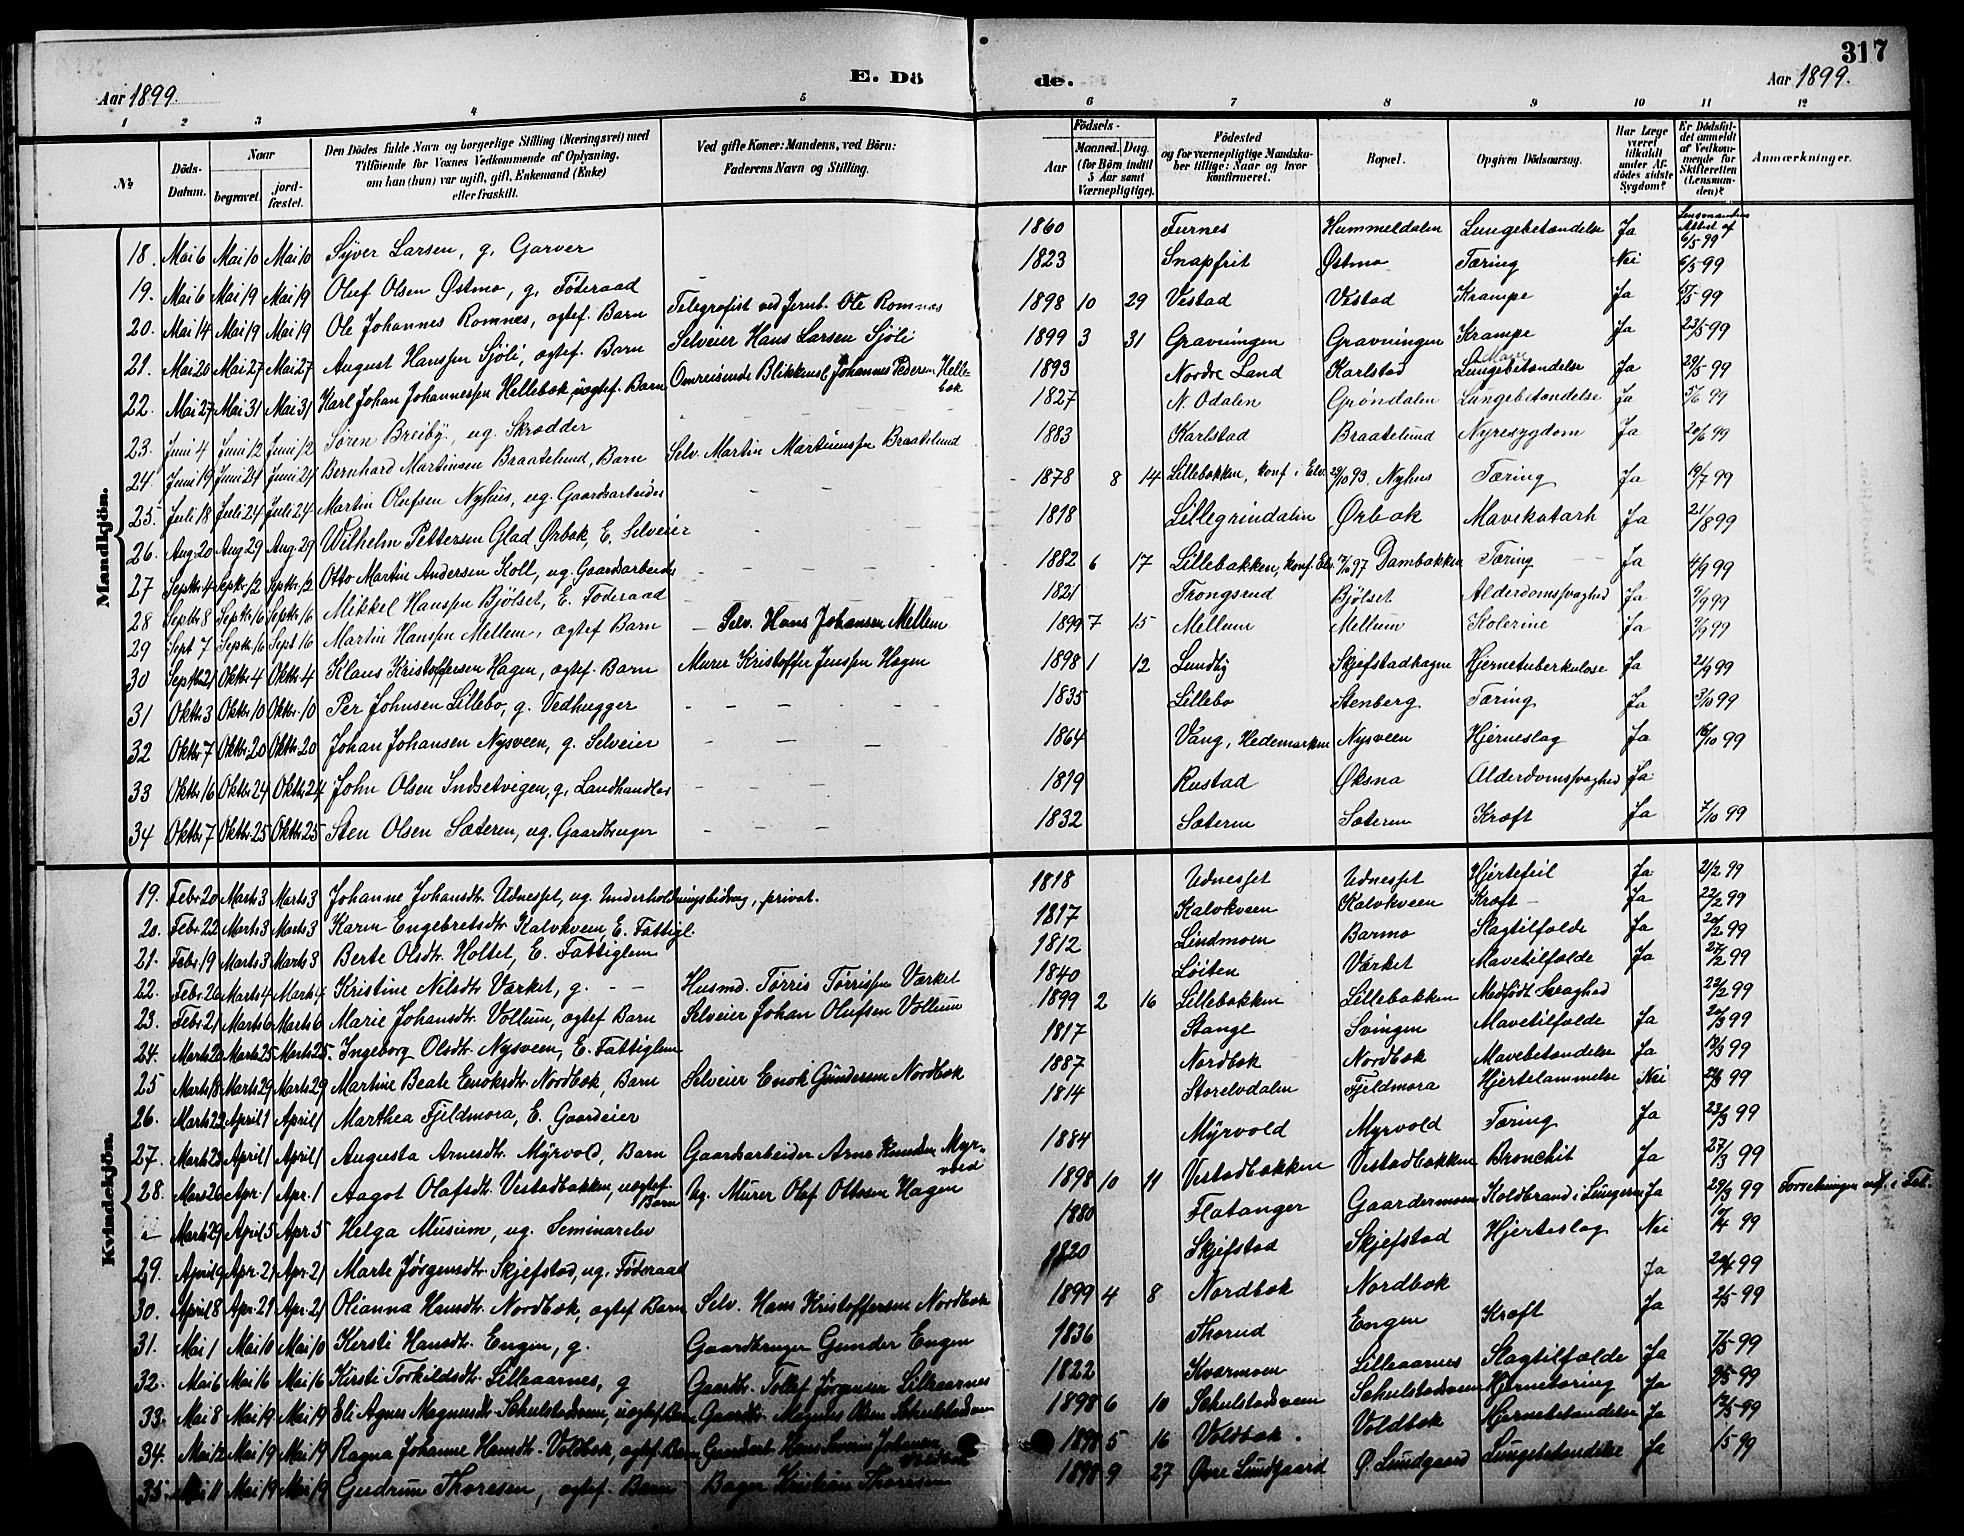 317
E. Dö de.
Aar 1899.
Aar 1899.
1 2 3 4 5 6 7 8 9 10 11 12
№ Döds-Datum. Naar begravet. jord-fæstet. Den Dödes fulde Navn og borgerlige Stilling (Næringsvei) med Tilföiende for Voxnes Vedkommende af Oplysning, om han (hun) var ugift, gift, Enkemand (Enke) eller fraskilt. Ved gifte Koner: Mandens, ved Börn: Faderens Navn og Stilling. Födsels- Aar Maaned. Dag. (for Börn indtil 5 Aar samt Værnepligtige). Födested og for værnepligtige Mandska-ber tillige: Naar og hvor konfirmeret. Bopæl. Opgiven Dödsaarsag. Har Læge været tilkaldt under Af-dödes sidste Sygdom? Er Dödsfal-det anmeldt af Vedkom-mende for Skifteretten (Lensman-den)? Anmærkninger.
Mandkjön.
18. Mai 6 Mai 10 Mai 10 Syver Larsen, g. Garver 1860 Furnes Hummeldalen Lungebetændelse Ja Lensmandens Attest af 6/5 99
19. Mai 6 Mai 19 Mai 19 Oluf Olsen Østmo, g. Føderaad - 1823 Snapfrit Østmo Tæring Nei 6/5 99
20. Mai 14 Mai 19 Mai 19 Ole Johannes Romnes, ægtef. Barn Telegrafist ved Jernb. Ole Romnæs 1898 10 29 Vestad Vestad Krampe Ja 15/5 99
21. Mai 20 Mai 27 Mai 27 August Hanssen Sjöli, ægtef. Barn Selveier Hans Larsen Sjöli 1899 3 31 Gravningen Gravningen Krampe Ja 23/5 99
22. Mai 27 Mai 31 Mai 31 Karl Johan Johannessen Hellebæk, uægtef. Barn Omreisende Blikkensl. Johannes Pedersen Helle-bæk 1893 Nordre Land Karlstad Lungebetændelse Ja 29/5 99
23. Juni 4 Juni 12 Juni 12 Sören Breiby, ug. Skrædder - 1827 N. Odalen Grøndalen Lungebetændelse Ja 5/6 99
24. Juni 19 Juni 24 Juni 24 Bernhard Martinsen Braatelund, Barn Selv. Martin Martinussen Braatelund 1883 Karlstad Braatelund Nyresygdom Ja 20/6 99
25. Juli 18 Juli 24 Juli 24 Martin Olufsen Nyhus, ug. Gaardsarbeider - - 1878 8 14 Lillebakken, konf. i Elv. 29/10 93 Nyhus Tæring Ja 19/7 99
26. Aug. 20 Aug 29 Aug. 29 Wilhelm Pettersen Glad Ørbæk, E. Selveier - - 1818 Lillegrindalen Ørbæk Mavekatarh Ja 21/8 99
27 Septbr. 4 Septbr. 12 Septbr. 12 Otto Martin Andersen Koll, ug. Gaardsarbeider - - - 1882 6 17 Lillebakken, konf. Elv. 97 Dambakken Tæring Ja 4/9 99
28 Septbr 8 Septbr. 16 Septbr. 16 Mikkel Hanssen Bjölset, E. Føderaad - - - 1821 Trongsrud Bjölset Alderdomssvaghed Ja 9/9 99
29 Sept 7 Septbr 16 Sept 16 Martin Hanssen Mellem, ægtef Barn Selv. Hans Johansen Mellem 1899 7 15 Mellum Mellum Kolerine Ja 7/9 99
30 Septbr. 21 Oktbr. 4 Oktbr. 4 Klaus Kristoffersen Hagen, ægtef. Barn Murer Kristoffer Jenssen Hagen 1898 1 12 Lundby Skjefstadhagen Hjernetuberkulose Ja 21/9 99
31 Oktbr. 3 Oktbr. 10 Oktbr. 10 Per Johnsen Lillebo, g. Vedhugger - - - 1835 Lillebo Stenberg Tæring Ja 3/10 99
32 Oktbr. 7 Oktbr. 20 Oktbr. 20 Johan Johansen Nysveen, g. Selveier - - - 1864 Vang, Hedemarken Nysveen Hjerneslag Ja 16/10 99
33 Oktbr. 16 Oktbr. 24 Oktbr. 24 John Olsen Indsetvigen, g. Landhandler - - - 1819 Rustad Øksna Alderdomssvaghed Ja
34 Oktbr. 7 Oktbr. 25 Oktbr. 25 Sten Olsen Sæteren, ug. Gaardbruger - - - 1832 Sæteren Sæteren Kræft Ja 7/10 99
Kvindekjön.
19. Febr 20 Marts 3 Marts 3 Johanne Johansdtr. Udnesset, ug. Underholdningsbidrag, privat. 1818 Udnesset Udnesset Hjertefeil Ja 21/2 99
20. Febr. 22 Marts 3 Marts 3 Karen Engebretsdtr Kalvkveen, E. Fattigl. 1817 Kalvkveen Kalvkveen Kræft - Ja 22/2 99
21. Febr. 19 Marts 3 Marts 3 Berte Olsdtr. Holtet, E. Fattiglem 1812 Lindmoen Barmo Slagtilfælde Ja 20/2 99
22. Febr. 26 Marts 4 Marts 4 Kristine Nilsdtr Værket, g. - - Husmd. Törris Törrissen Værket 1840 Løiten Værket Mavetilfælde Ja 27/2 99
23. Febr. 21 Marts 6 Marts 6 Marie Johansdtr. Vollum, ægtef Barn Selveier Johan Olufsen Vollum 1899 2 16 Lillebakken Lillebakken Medfødt Svaghed 22/2 99
24. Marts 20 Marts 25 Marts 25. Ingeborg Olsdtr. Nysveen, E. Fattiglem 1817 Stange Svingen Mavetilfælde Ja 20/3 99
25 Marts 18 Marts 29 Marts 29 Martine Beate Enoksdtr. Nordbæk, Barn Selveier Enok Gundersen Nordbæk 1887 Nordbæk Nordbæk Mavebetændelse Ja 18/3 99
26. Marts 22 April 1 April 1 Marthea Fjeldmora, E. Gaardeier 1814 Storelvdalen Fjeldmora Hjertelammelse Nei 22/3 99
27. Marts 23 April 1 April 1 Augusta Arnesdtr. Myrvold, Barn Gaardsarbeider Arne Myr-vold 1884 Myrvold Myrvold Tæring Ja 23/3 99
28. Mars 26 Apr. 1 Apr. 1 Aagot Olafsdtr. Vestadbakken, uægtef Barn Ug. Murer Olaf Ottosen Hagen 1898 10 11 Vestadbakken Vestadbakken Bronchit Ja 27/3 99
Marts 29 April 5 Apr. 5 Helga Musum, ug. Seminarelev 1880 Flatanger Gaardermoen Koldbrand i Lungerne Ja 29/3 99
29. April 9 Apr. 21 Apr. 21 Marte Jørgensdtr. Skjefstad, ug. Føderaad 1820 Skjefstad Skjefstad Hjerteslag Nei 4 99
30. April 8 Apr. 21 Apr. 21 Olianna Hansdtr. Nordbæk, ægtef Barn Selv. Hans Kristoffersen Nordbæk 1899 4 8 Nordbæk Nordbæk Ja 4 99
31. Mai 1 Mai 10 Mai 10 Kersti Hansdtr. Engen, g. Gaardbruger Gunder Engen 1836 Thorud Engen Kræft Ja 2/5 99
32. Mai 6 Mai 16 Mai 16 Kirsti Torkildsdtr. Lilleaarnes, g Gaardbr. Tollef Jørgensen Lilleaarnes 1822 Kværmoen Lilleaarnes Slagtilfælde Ja 7/5 99
33. Mai 8 Mai 19 Mai 19 Eli Agnes Magnusdtr Schulstadsveen, uægtef Barn Gaardbr. Magnus Olsen Schulstadsveen 1898 6 10 Schulstadsveen Schulstadsveen Hjernetæring Ja 9/5 99
34. Mai 12 Mai 19 Mai 19 Ragna Johanne Hansdtr. Voldbæk, ægtef. Barn Gaardarb Hans Severin Johansen Voldbæk 1898 5 16 Voldbæk. Voldbæk Hjernebetændelse Ja 13/5 99
35. Mai 11 Mai 19 Mai 19 Gudrun Thoresen, ægtef. Barn Bager Kristian Thoresen 1898 9 27 Øvre Lundgaard Ø. Lundgaard Lungebetændelse Ja 5 99